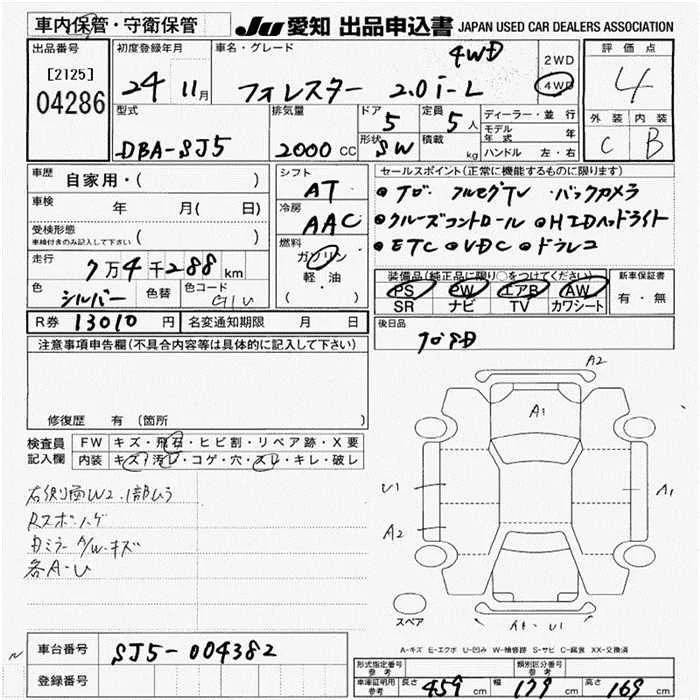 車内保管・守衛保管
JU 愛知 出品申込書 JAPAN USED CAR DEALERS ASSOCIATION
出品番号 初度登録年月 車名・グレード 4WD 2WD 評価点
[2125] 24 11月 フォレスター 2.0i-L 4WD 4
04286
型式 排気量 ドア 定員 ディーラー・並行 外装 内装
5 5人 モデル年式 年
DBA-SJ5 2000CC 形状 SW 積載 kg ハンドル 左・右 C B
車歴 自家用・( ) シフト AT セールスポイント(正常に機能するものに限ります)
車検 年 月( 日) 冷房 AAC ●ナビ フルセグTV ・バックカメラ
受検形態 ( ) ●クルーズコントロール ●HIDヘッドライト
車検付きのみ記入して下さい
走行 7万4千288km 燃料 ガソリン ●ETC ●VDC ●ドラレコ
軽・油
( )
色 シルバー 色替 色コード G1U 装備品(純正品に限り○をつけてください) 新車保証書
PS PW エアB AW 有・無
SR ナビ TV カワシート
R券 13010円 名変通知期限 月 日 後日品
注意事項申告欄(不具合内容等は具体的に記入して下さい)
修復歴 有(箇所 )
A2
A1
U1 A1
A2
検査員 FW キズ・飛石・ヒビ割・リペア跡・X要
記入欄 内装 キズ・汚レ・コゲ・穴・スレ・キレ・破レ
右側面W2、1部ムラ
各A・U
スペア
A1・U1
A-キズ E-エクボ U-凹み W-補修跡 S-サビ C-腐食 XX-交換済
車台番号 SJ5-004382
登録番号
形式指定番号 参考 類別区分番号 参考
車庫証明用 参考 長さ 459cm 幅 179cm 高さ 169cm